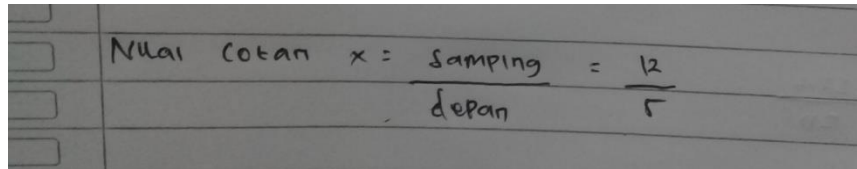 Nilai Cotan x = samping / depan = 12 / 5